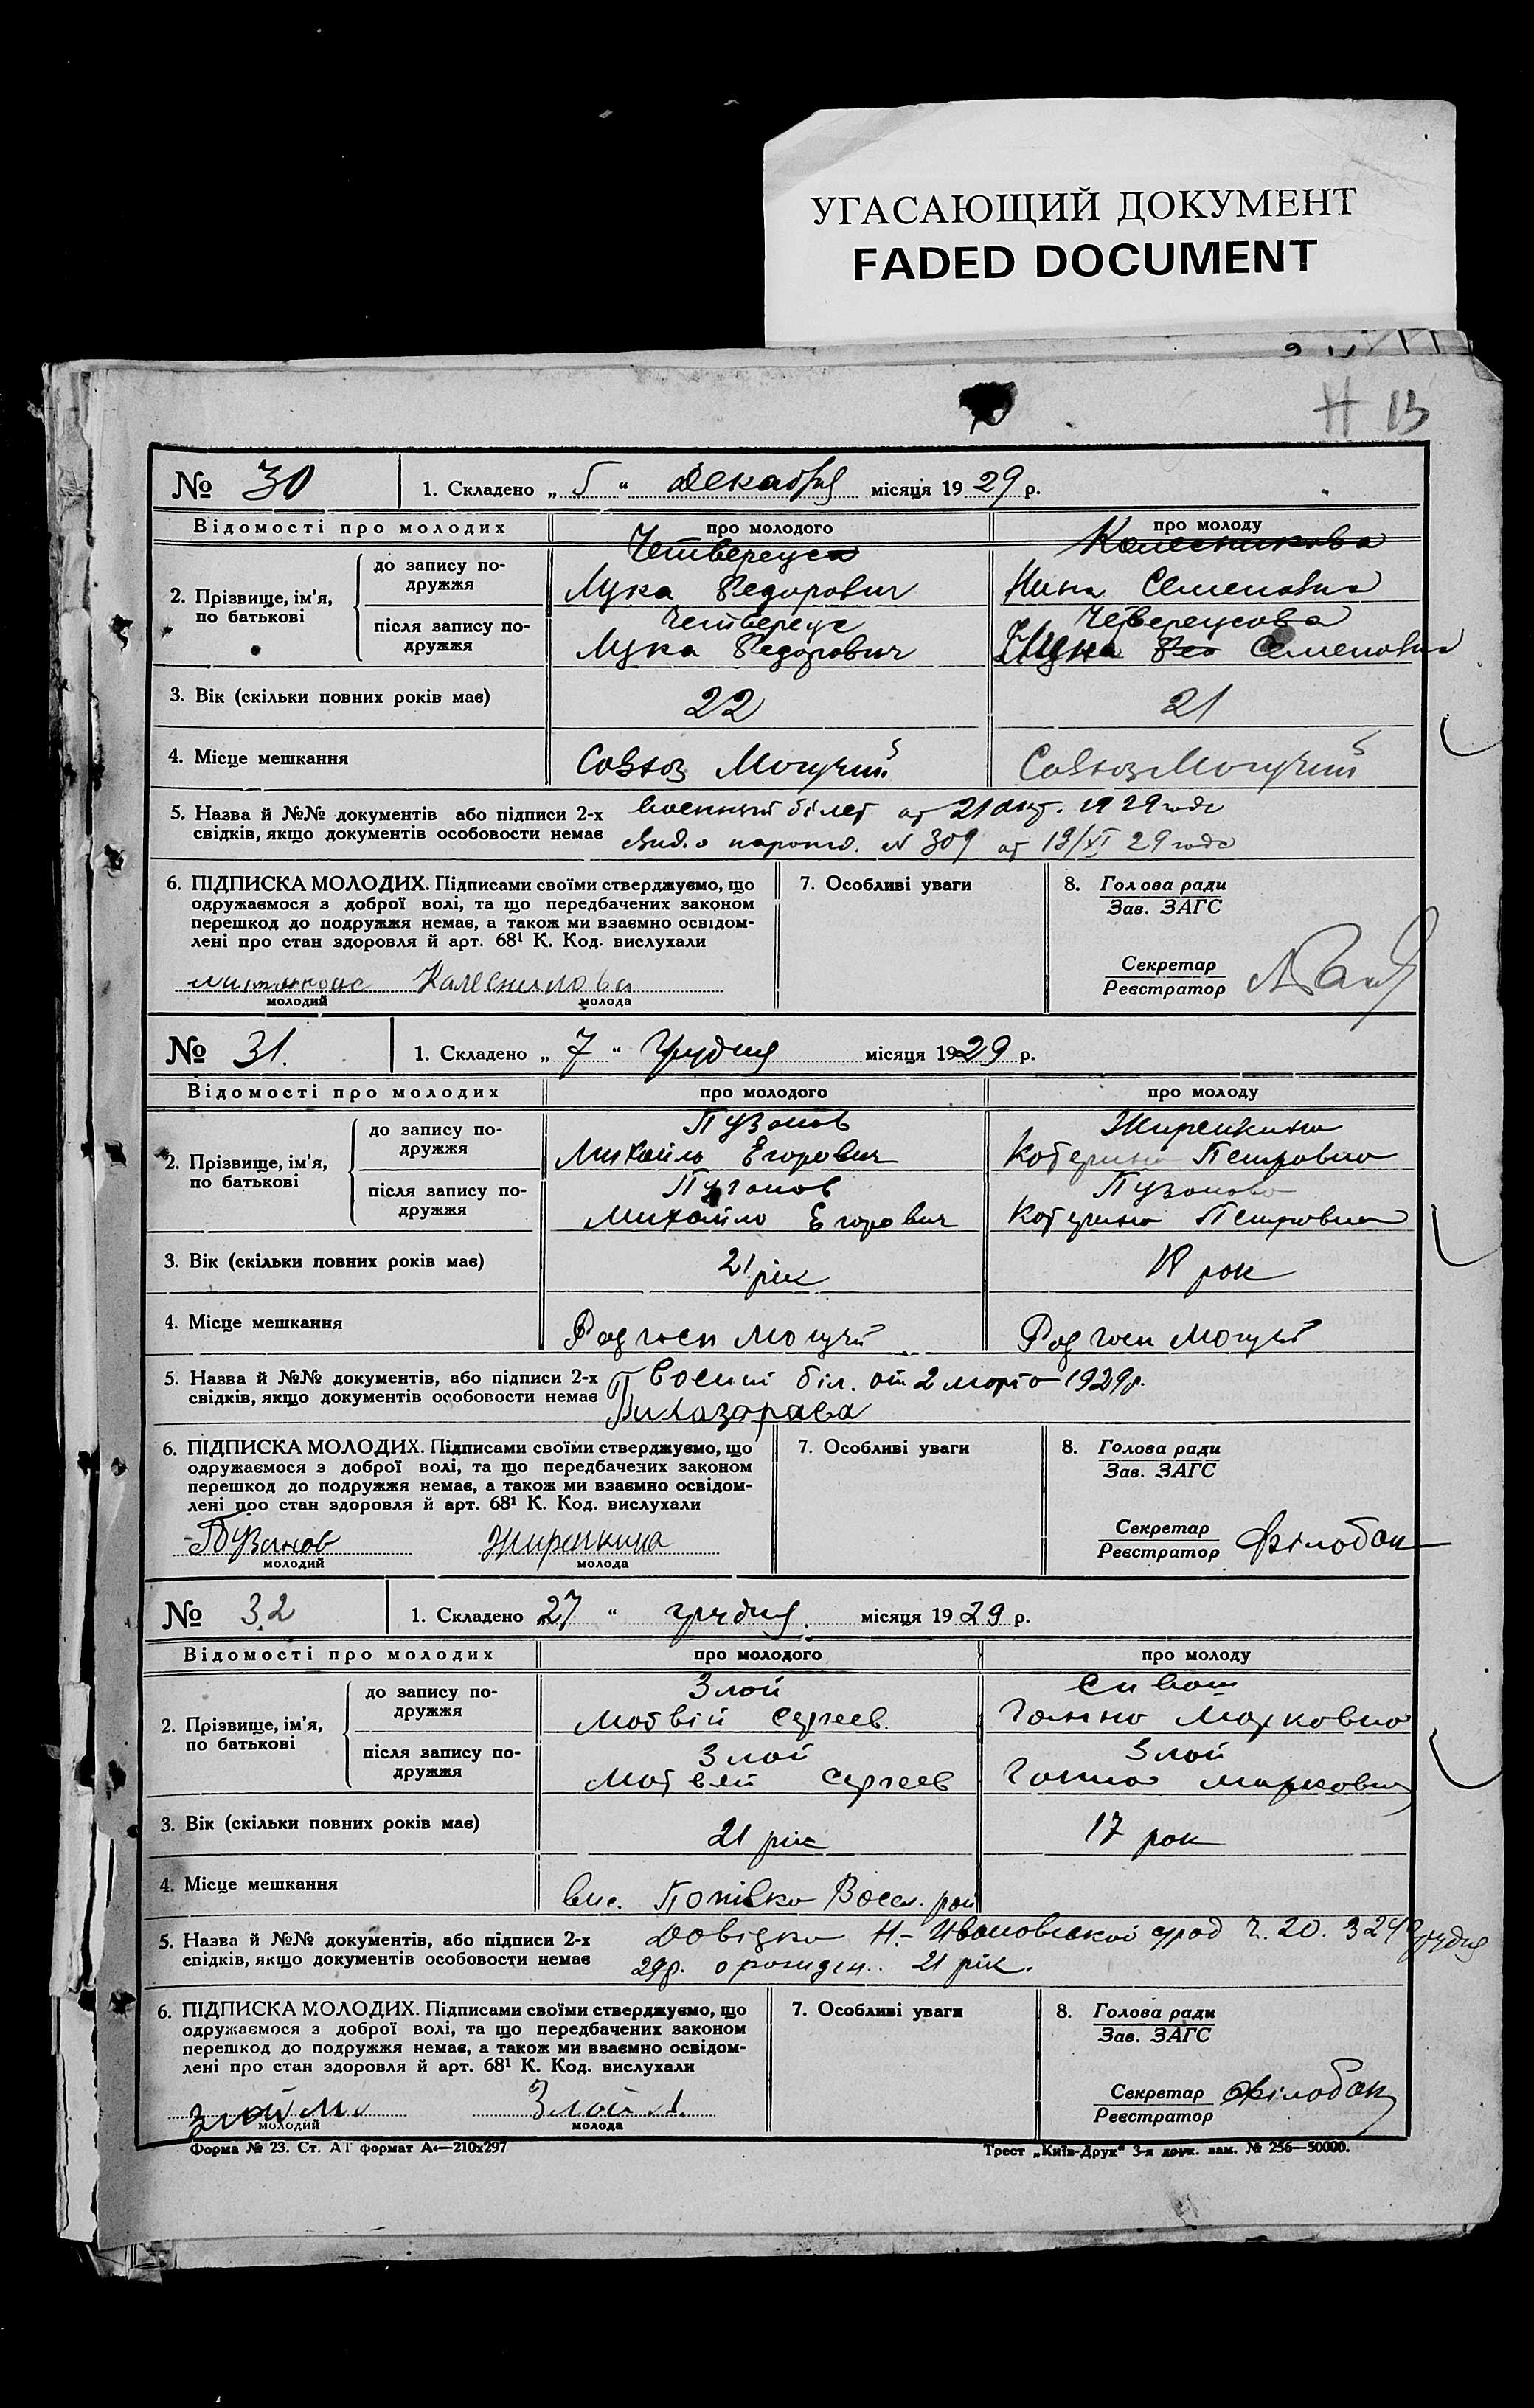 УГАСАЮЩИЙ ДОКУМЕНТ
FADED DOCUMENT
Н 13
№ 30 1. Складено „ 5 “ декабря місяця 1929 р.
Відомості про молодих про молодого про молоду
2. Прізвище, ім'я, по батькові
до запису подружжя
Четверецса Колесникова
Лука Федорович Нина Семеновна
після запису подружжя
Четверецс Четверецсова
Лука Федорович Нина Фео Семеновна
3. Вік (скільки повних років має) 22 21
4. Місце мешкання Совхоз Могучий Совхоз Могучий
5. Назва й №№ документів або підписи 2-х Военный білет от 21 окт. 1929 года
свідків, якщо документів особовости немає N 309 от 13/XI 29 года
6. ПІДПИСКА МОЛОДИХ. Підписами своїми стверджуємо, що 7. Особливі уваги 8. Голова ради
одружаємося з доброї волі, та що передбачених законом Зав. ЗАГС
перешкод до подружжя немає, а також ми взаємно освідом-
лені про стан здоровля й арт. 68¹ К. Код. вислухали
Секретар
Реєстратор
Калесникова
молодий молода
№ 31. 1. Складено „ 7 “ Грудня місяця 1929 р.
Відомості про молодих про молодого про молоду
2. Прізвище, ім'я, по батькові
до запису подружжя
Пузанов Жиренкина
Михайло Егорович Котерина Петровна
після запису подружжя
Пузанов Пузанова
Михайло Егорович Котерина Петровна
3. Вік (скільки повних років має) 21 рік 18 рок
4. Місце мешкання Радгосп Могучий Радгосп Могучий
5. Назва й №№ документів, або підписи 2-х Воєний біл. от 2 марта 1929р.
свідків, якщо документів особовости немає
6. ПІДПИСКА МОЛОДИХ. Підписами своїми стверджуємо, що 7. Особливі уваги 8. Голова ради
одружаємося з доброї волі, та що передбачених законом Зав. ЗАГС
перешкод до подружжя немає, а також ми взаємно освідом-
лені про стан здоровля й арт. 68¹ К. Код. вислухали
Секретар
Реєстратор Філобок
Пузанов Жиренкина
молодий молода
№ 32 1. Складено 27 “ грудня місяця 1929 р.
Відомості про молодих про молодого про молоду
2. Прізвище, ім'я, по батькові
до запису подружжя
Злой Сиваш
Мотвій Сергеев. Ганна Марковна
після запису подружжя
Злой Злой
Мотвей Сергеев Ганна Марковна
3. Вік (скільки повних років має) 21 рік 17 рок
4. Місце мешкання вис. Попівка
5. Назва й №№ документів, або підписи 2-х Довідка Н.-Ивановської Ч. 20. з 24 грудня
свідків, якщо документів особовости немає 29р. о рожден. 21 рік.
6. ПІДПИСКА МОЛОДИХ. Підписами своїми стверджуємо, що 7. Особливі уваги 8. Голова ради
одружаємося з доброї волі, та що передбачених законом Зав. ЗАГС
перешкод до подружжя немає, а також ми взаємно освідом-
лені про стан здоровля й арт. 68¹ К. Код. вислухали
Секретар Філобок
Реєстратор
Злой М Злой А.
молодий молода
Форма № 23. Ст. АІ формат А4—210x297 Трест „Київ-Друк“ 3-я друк. зам. № 256—50000.